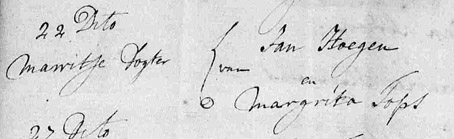 22 Dito
Marritje Dogter van Jan Hoegen
en
Margrita Tops
27 Dito